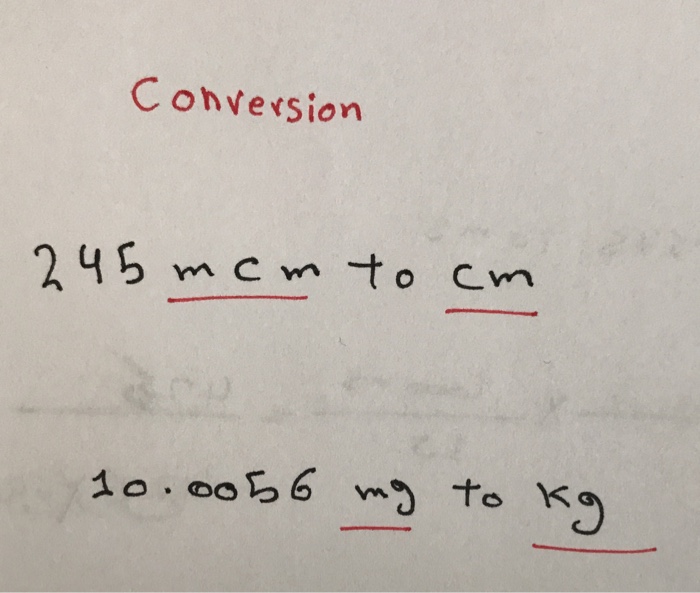 Conversion
245 mcm to cm
10.0056 mg to kg